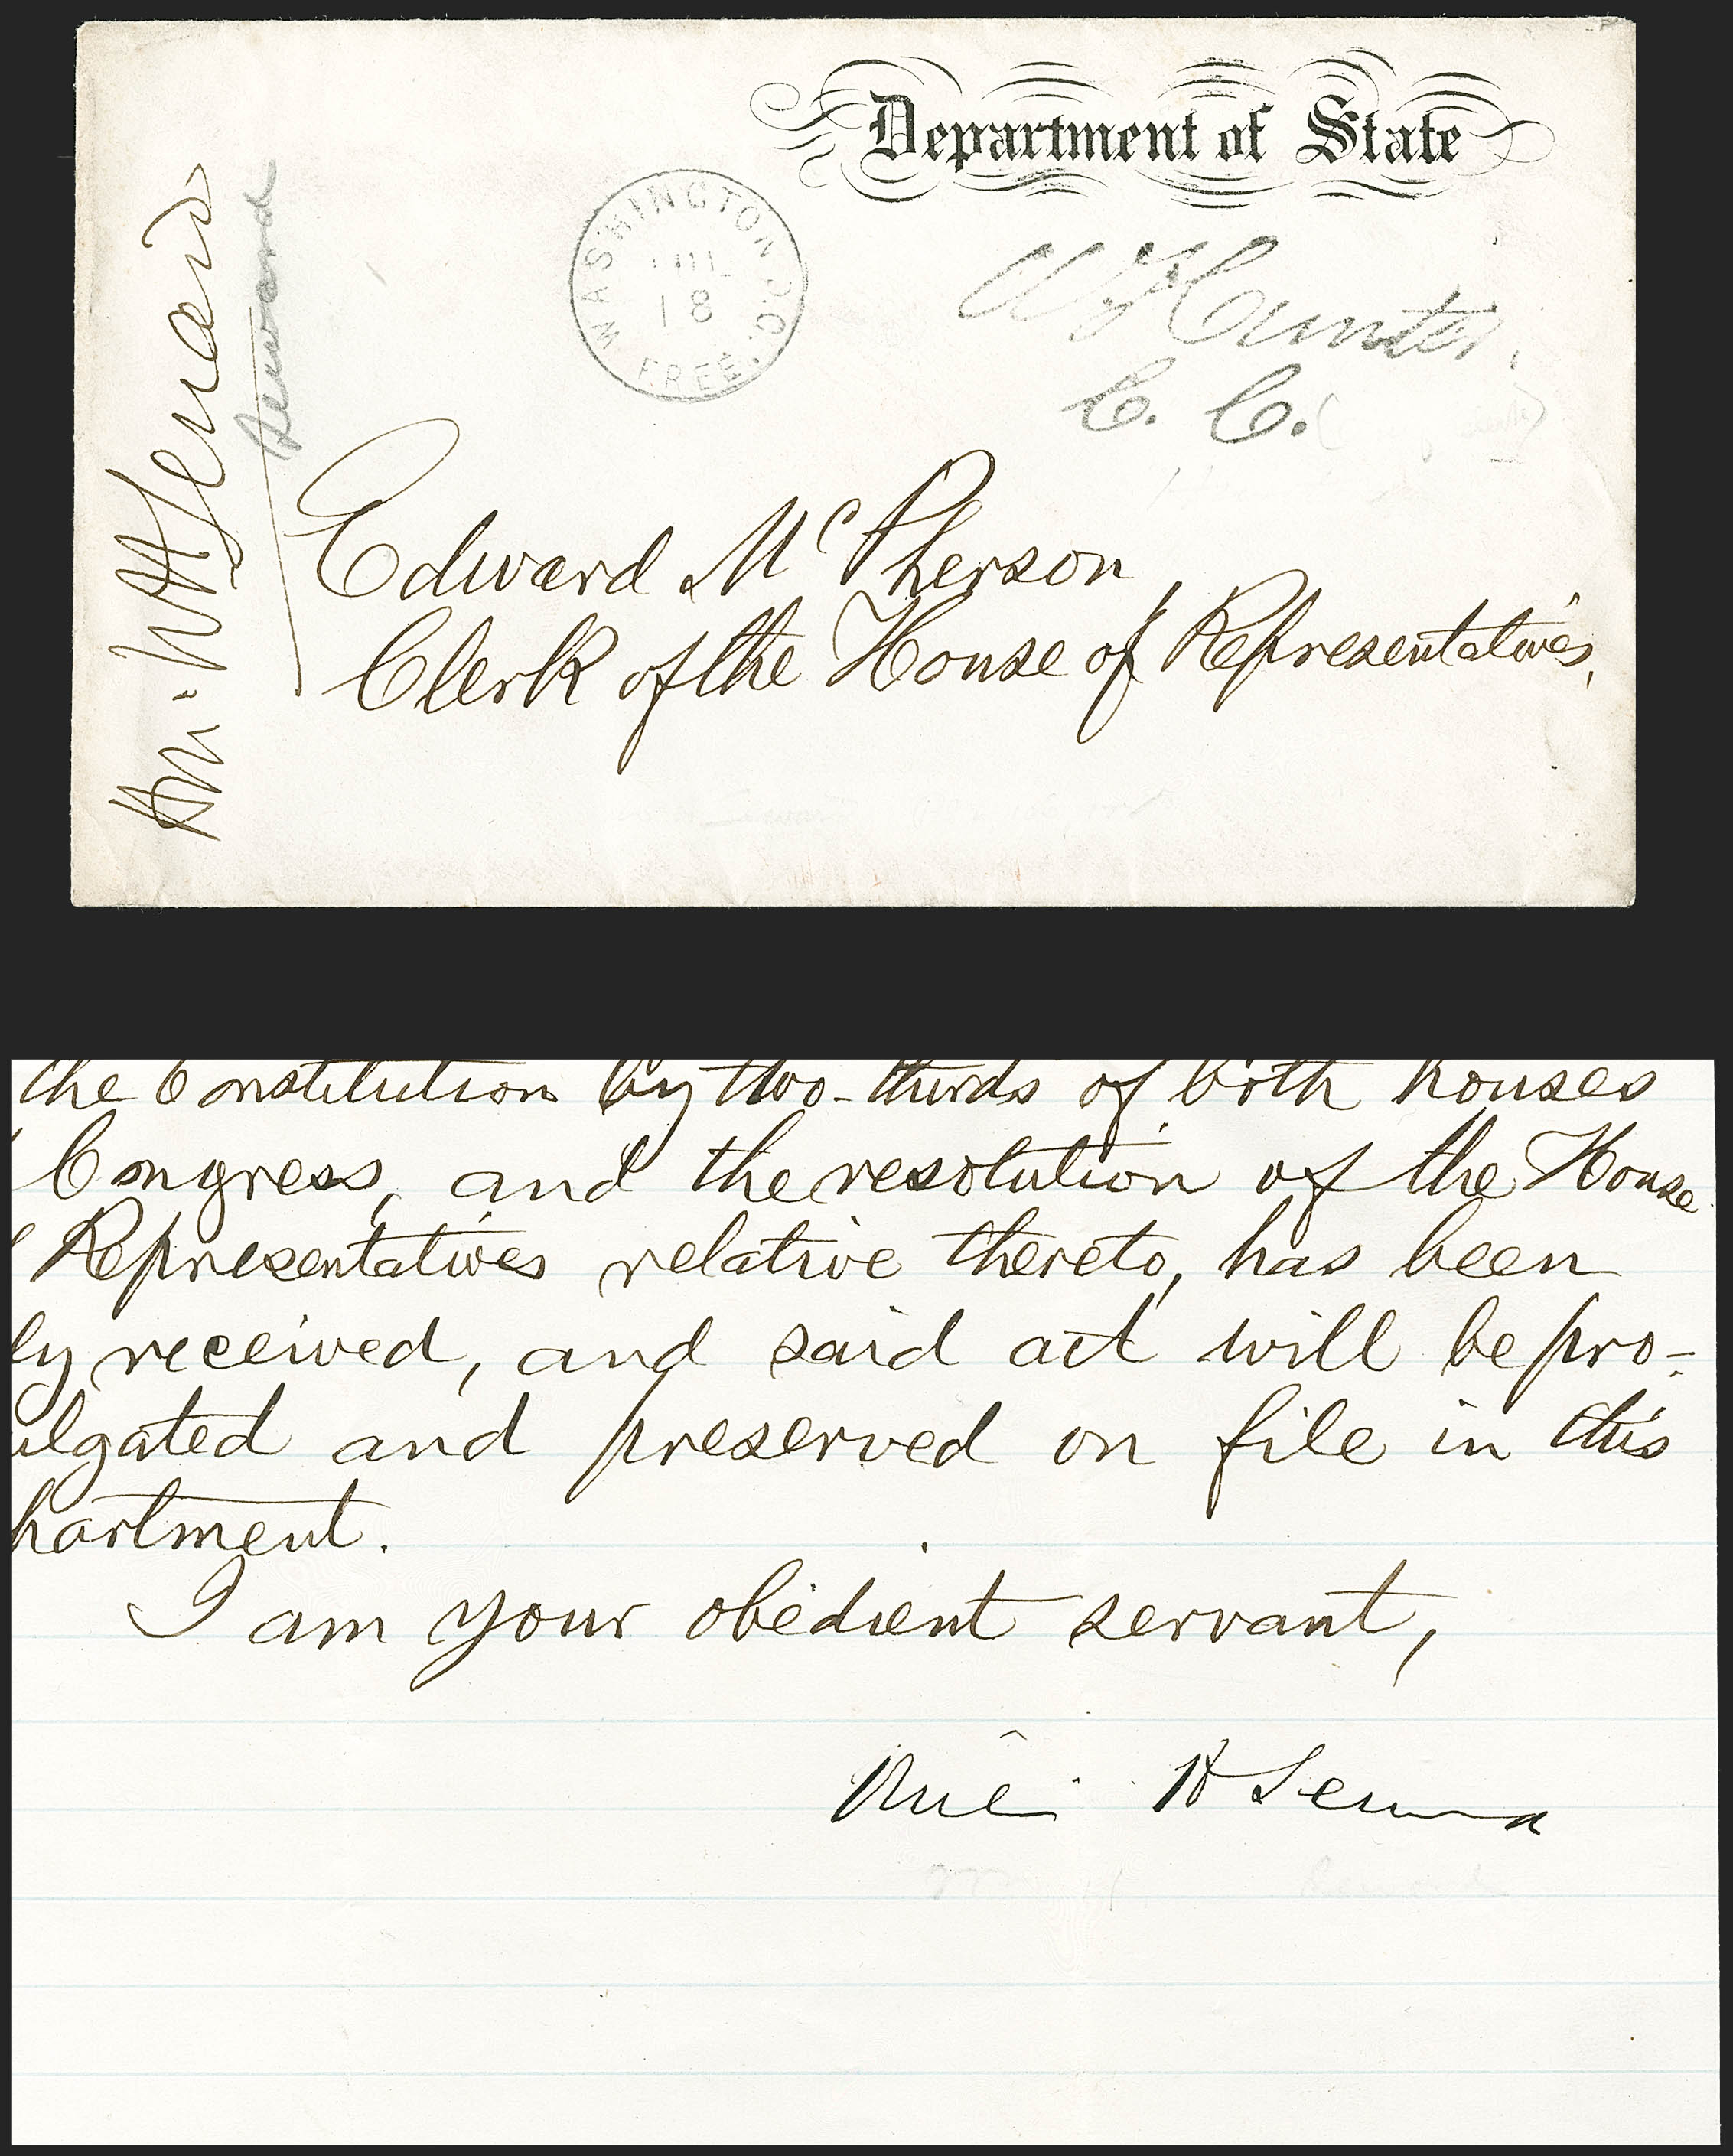 Department of State
WASHINGTON D.C.
JUL
18
FREE.
Wm Hunter,
C. C.
Hon. W H Seward
Seward
Edward McPherson,
Clerk of the House of Representatives,
the Constitution by two-thirds of both houses
Congress, and the resolution of the House
Representatives relative thereto, has been
ly received, and said act will be pro-
ulgated and preserved on file in this
partment.
I am your obedient servant,
H Seward